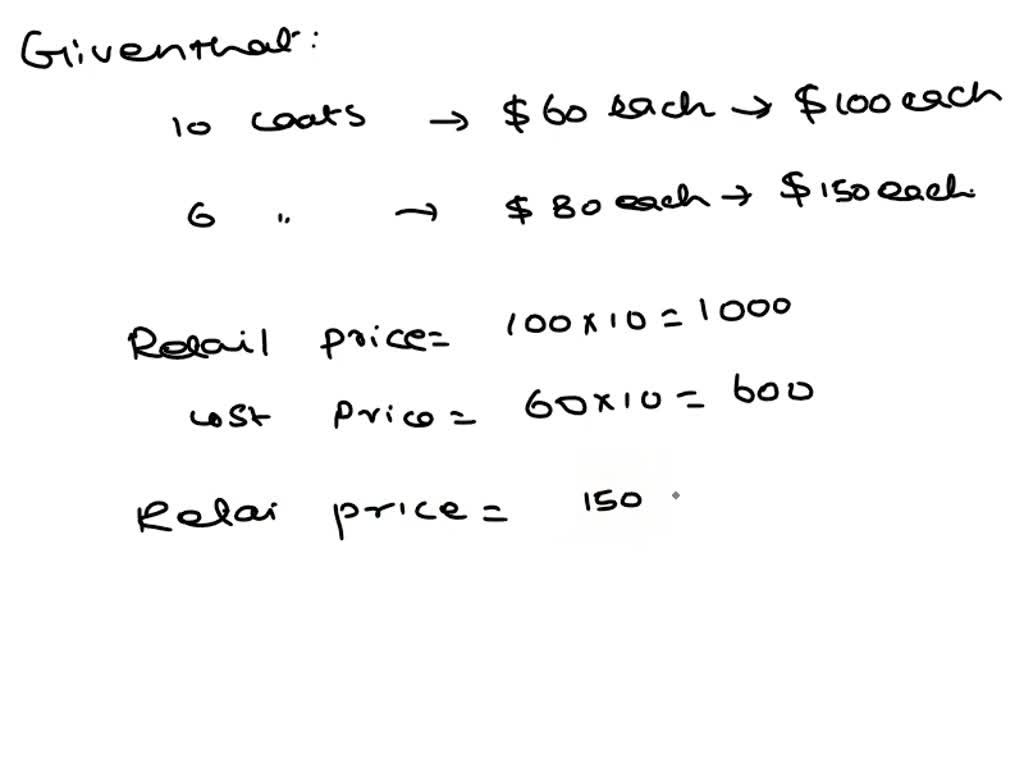 Giventhat:
10 coats → $60 each → $100 each
6 " → $80 each → $150 each.
Retail price= 100x10=1000
cost price= 60x10= 600
Retai price= 150